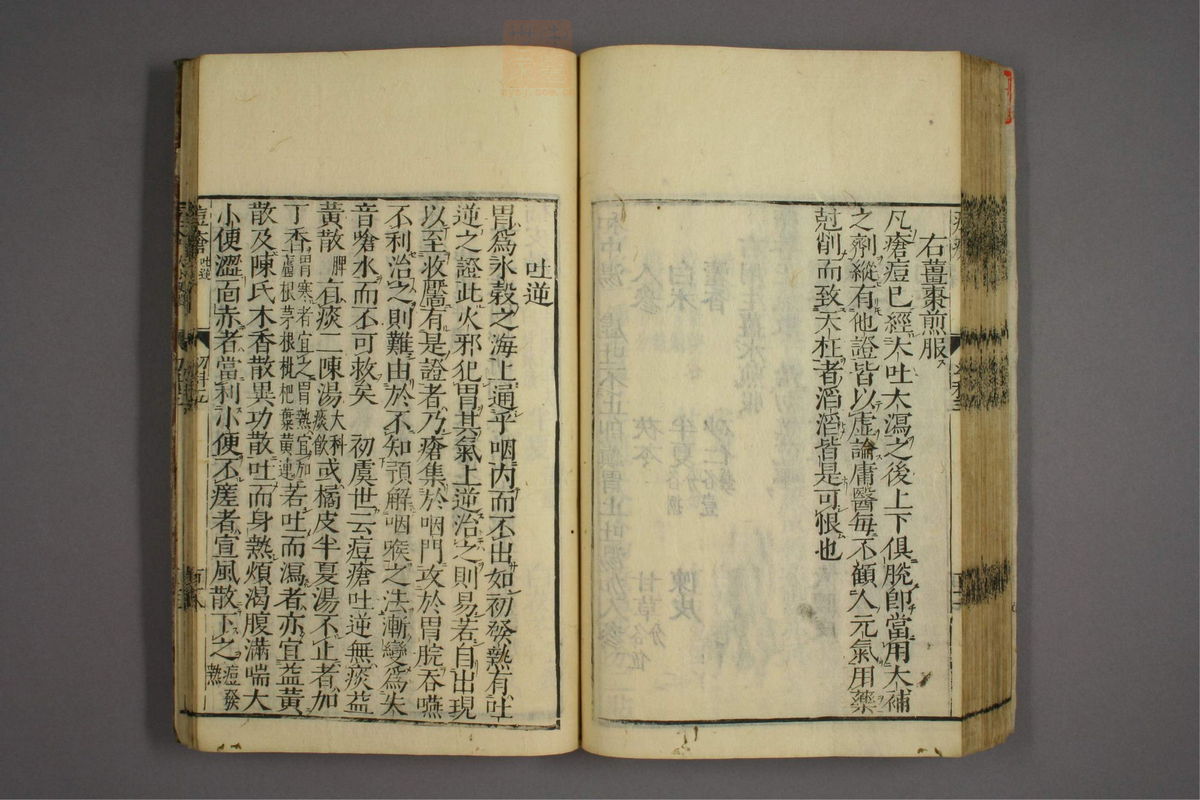 右薑棗煎服
凡瘡痘已經大吐大瀉之後上下俱脫卽當用大補
之劑縱有他證皆以虛論庸醫每不顧人元氣用藥
尅削而致夭枉者滔滔皆是可恨也
吐逆
胃爲水穀之海上通乎咽內而不出如初發熱有吐
逆之證此火邪犯胃其氣上逆治之則易若自出現
以至收靨有是證者乃瘡集於咽門攻於胃脘吞嚥
不利治之則難由於不知預解咽喉之法漸變爲失
音嗆水而不可救矣 初虞世云痘瘡吐逆無痰益
黃散脾有痰二陳湯大科痰飲或橘皮半夏湯不止者加
丁香胃寒者宜之胃熱宜加蘆根茅根枇杷葉黃連若吐而瀉者亦宜益黃
散及陳氏木香散異功散吐而身熱煩渴腹滿喘大
小便澀面赤者當利小便不瘥者宣風散下之痘發熱
痘瘡 吐逆